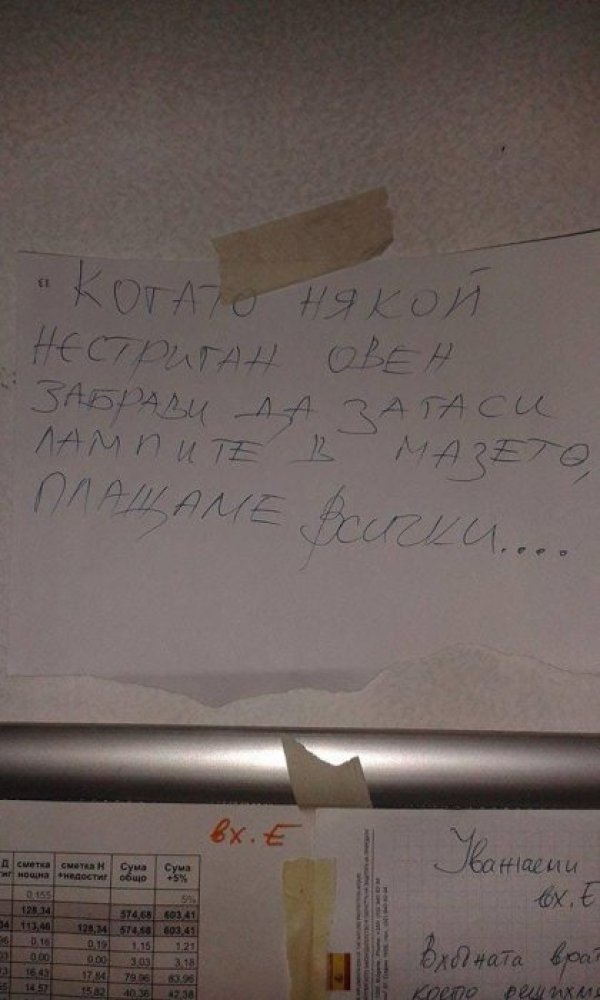 13
КОГАТО НЯКОЙ
НЕСТРИГАН ОВЕН
ЗАБРАВИ ДА ЗАГАСИ
ЛАМПИТЕ В МАЗЕТО,
ПЛАЩАМЕ ВСИЧКИ....
вх. Е
Д сметка нощна сметка Н +недостиг Сума общо Сума +5%
0,155 5%
128,34 574,68 603,41
113,46 128,34 574,68 603,41
0,16 0,19 1,15 1,21
0,00 0,00 3,03 3,18
16,43 17,84 79,96 83,96
14,57 15,82 40,36 42,38
Уважаеми
вх. Е
Входната врат
което решихм